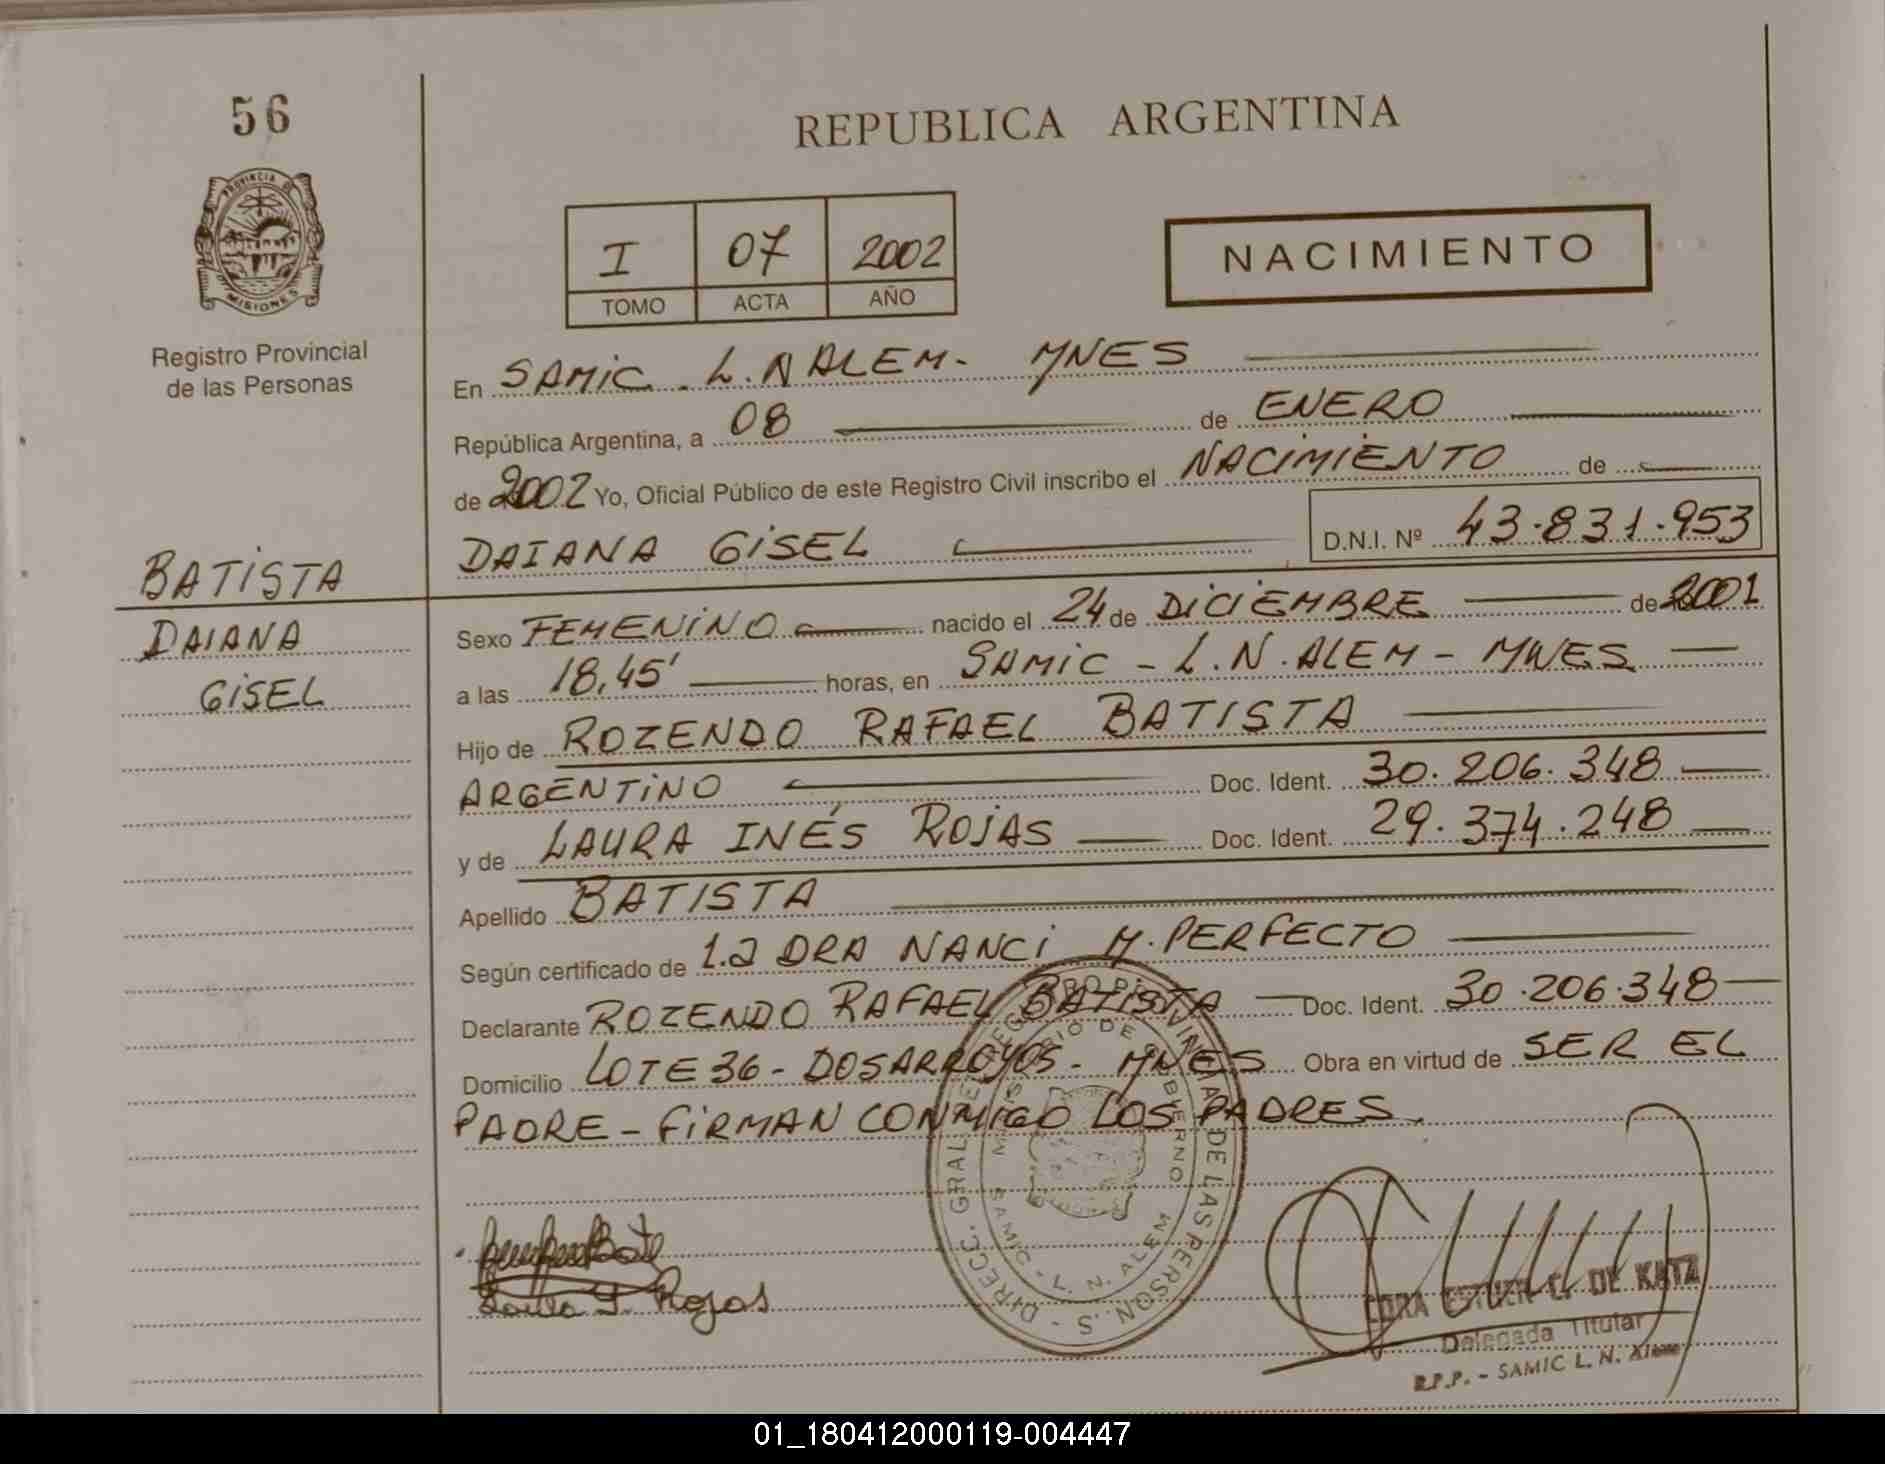 56
PROVINCIA DE
MISIONES
Registro Provincial
de las Personas
BATISTA
DAIANA
GISEL
REPUBLICA ARGENTINA
I 07 2002
TOMO ACTA AÑO
NACIMIENTO
En SAMIC. L.N ALEM - MNES
República Argentina, a 08 de ENERO
de 2002 Yo, Oficial Público de este Registro Civil inscribo el NACIMIENTO de
DAIANA GISEL D.N.I. Nº 43.831.953
Sexo FEMENINO nacido el 24 de DICIEMBRE de 2001
a las 18,45' horas, en SAMIC - L.N. ALEM - MNES
Hijo de ROZENDO RAFAEL BATISTA
ARGENTINO Doc. Ident. 30.206.348
y de LAURA INÉS ROJAS Doc. Ident. 29.374.248
Apellido BATISTA
Según certificado de 1.a DRA NANCI M. PERFECTO
Declarante ROZENDO RAFAEL BATISTA Doc. Ident. 30.206.348
Domicilio LOTE 36 - DOSARROYOS - MNES Obra en virtud de SER EL
PADRE - FIRMAN CONMIGO LOS PADRES.
DIRECC. GRAL. DE LAS PERSON.S
SAMIC - L. N. ALEM
Rojas
DE KATZ
Delegada Titular
R.P.P. - SAMIC L. N. Alem
01_180412000119-004447